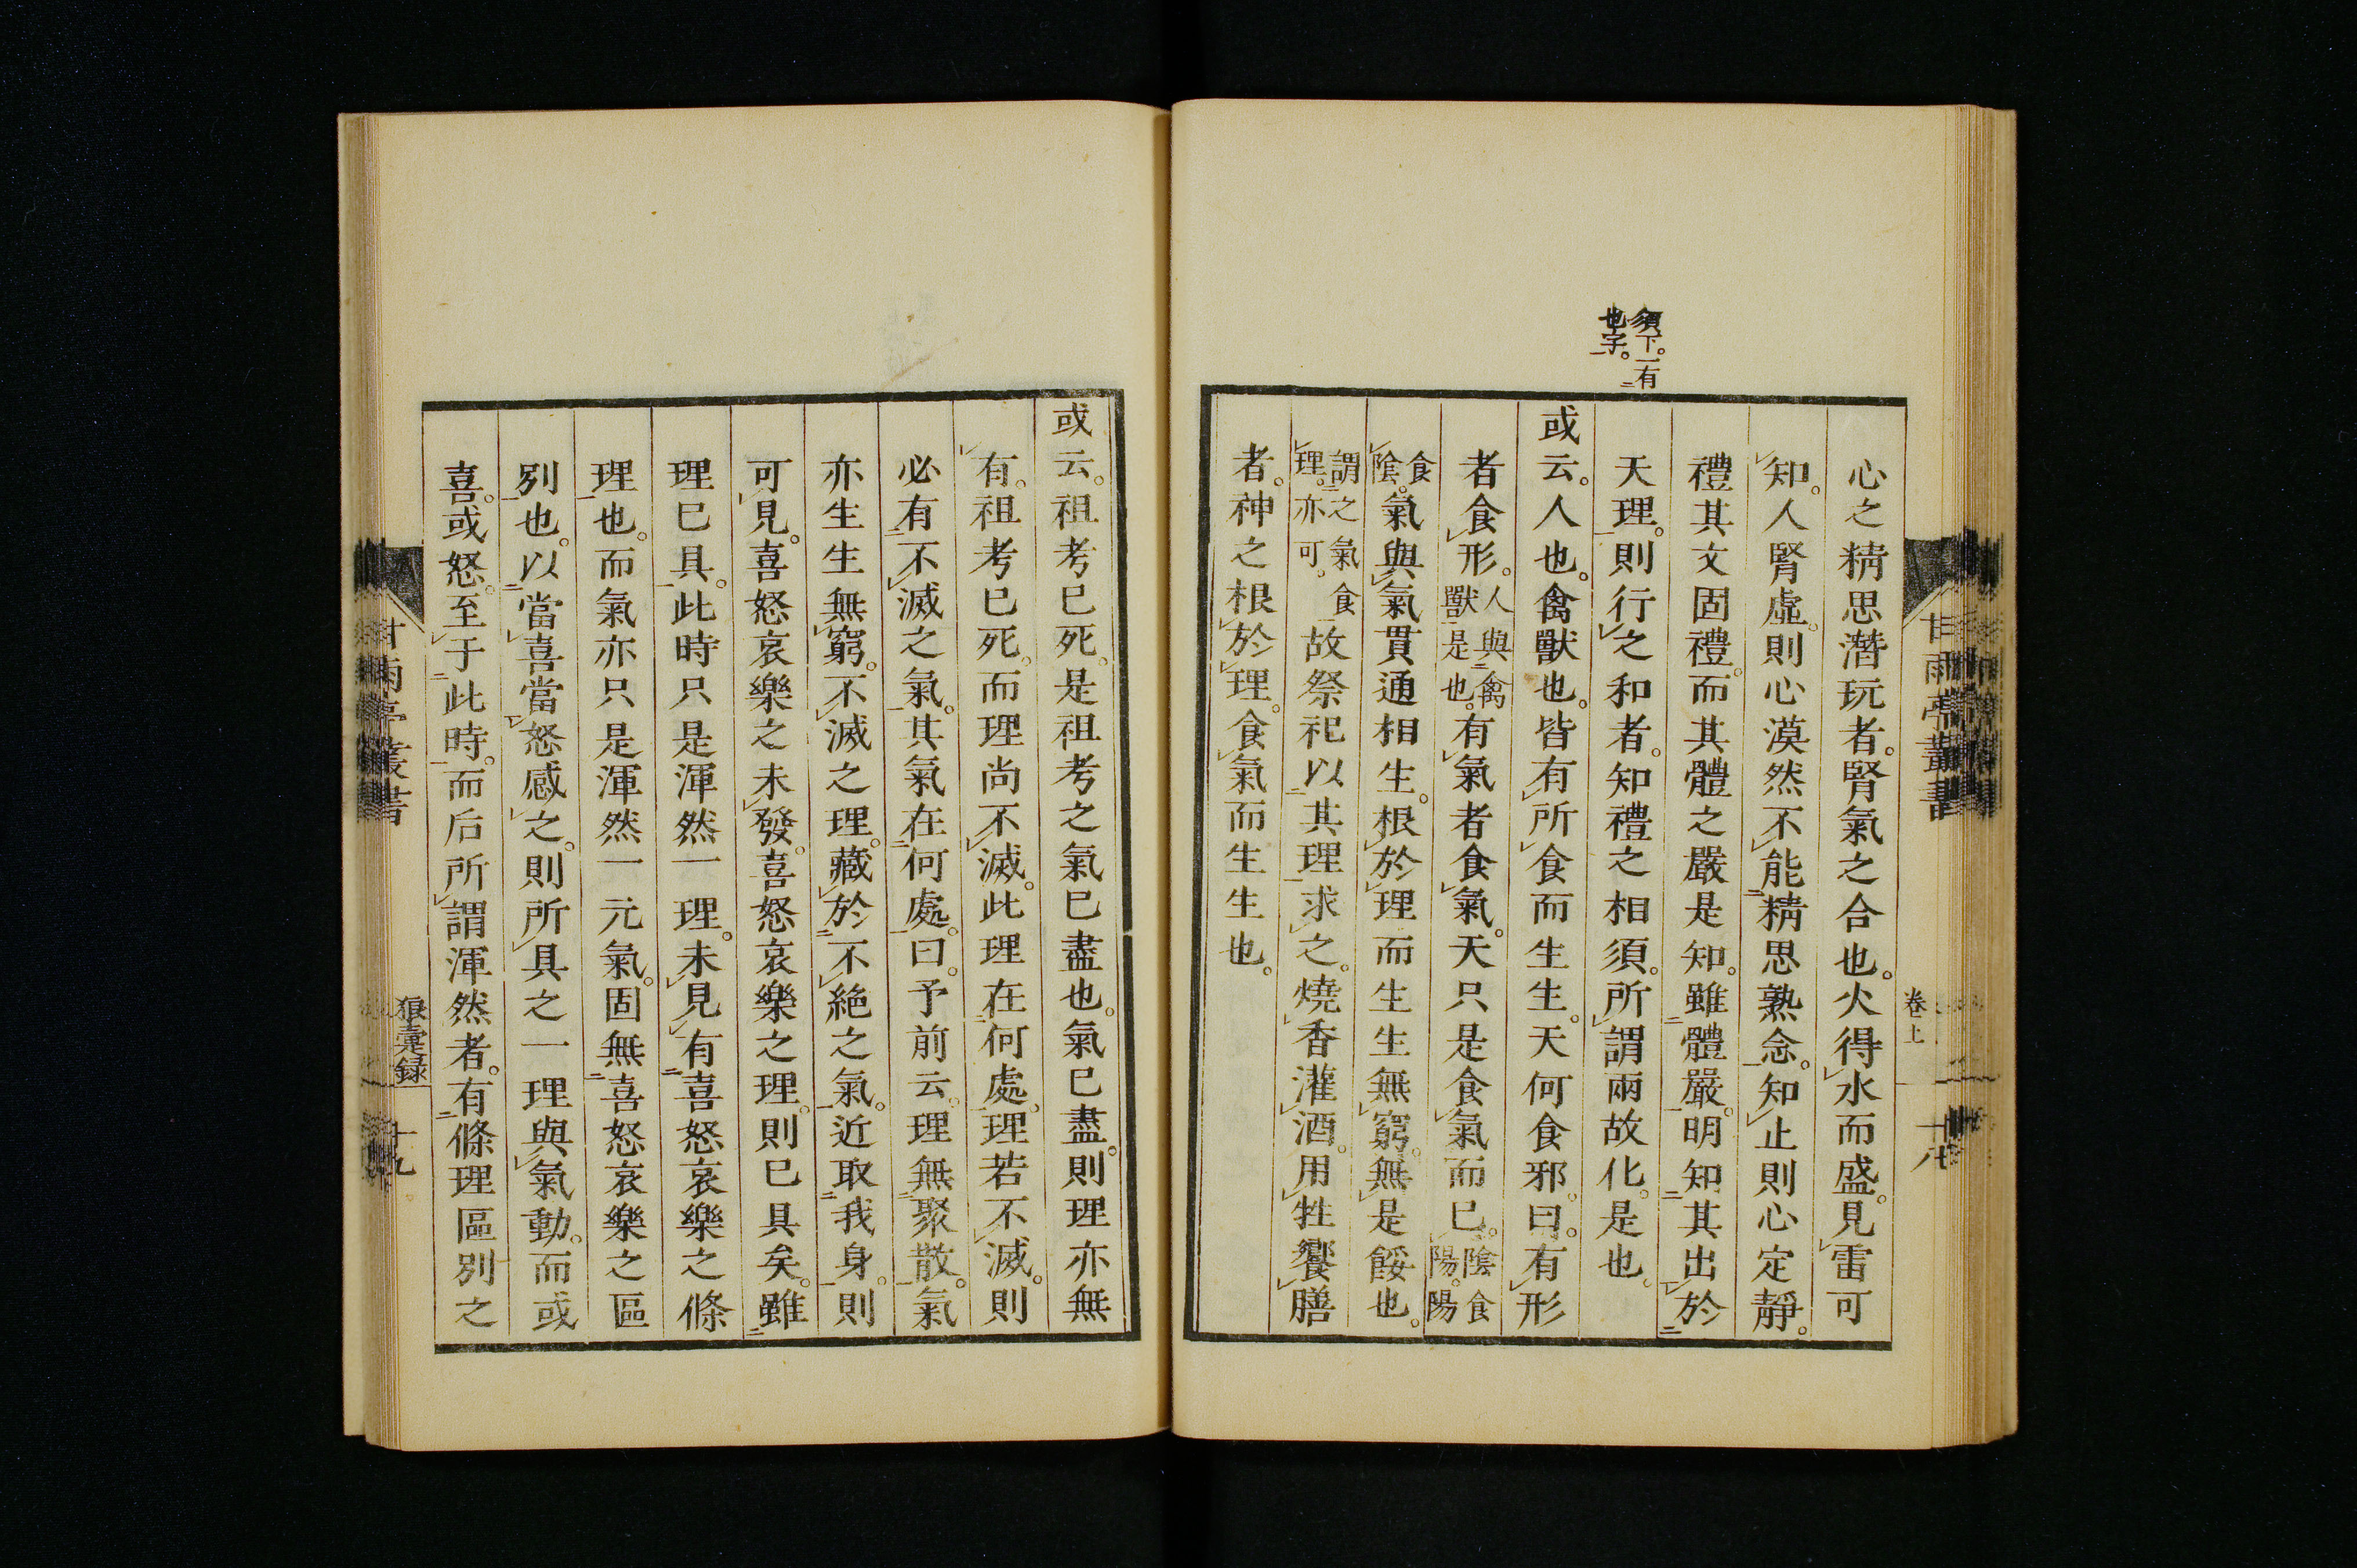 須下。一有
也字。
心之精思潛玩者。腎氣之合也。火得水而盛。見雷可
知。人腎虛。則心漠然不能精思熟念。知止則心定靜。
禮其文固禮。而其體之嚴是知。雖體嚴。明知其出於
天理。則行之和者。知禮之相須。所謂兩故化。是也。
或云。人也。禽獸也。皆有所食而生生。天何食邪。曰。有形
者食形。人與禽獸是也。有氣者食氣。天只是食氣而已。陰食陽。陽
食陰。氣與氣貫通相生。根於理而生生無窮。無是餒也。
謂之氣食理。亦可。故祭祀以其理求之。燒香灌酒。用牲饗膳
者。神之根於理。食氣而生生也。
甘雨亭叢書
卷上
十八
或云。祖考已死。是祖考之氣已盡也。氣已盡。則理亦無
有。祖考已死。而理尚不滅。此理在何處。理若不滅。則
必有不滅之氣。其氣在何處。曰。予前云。理無聚散。氣
亦生生無窮。不滅之理。藏於不絕之氣。近取我身。則
可見。喜怒哀樂之未發。喜怒哀樂之理。則已具矣。雖
理已具。此時只是渾然一理。未見有喜怒哀樂之條
理也。而氣亦只是渾然一元氣。固無喜怒哀樂之區
別也。以當喜當怒感之。則所具之一理與氣動。而或
喜。或怒。至于此時。而后所謂渾然者。有條理區別之
甘雨亭叢書
狼疐録
十九